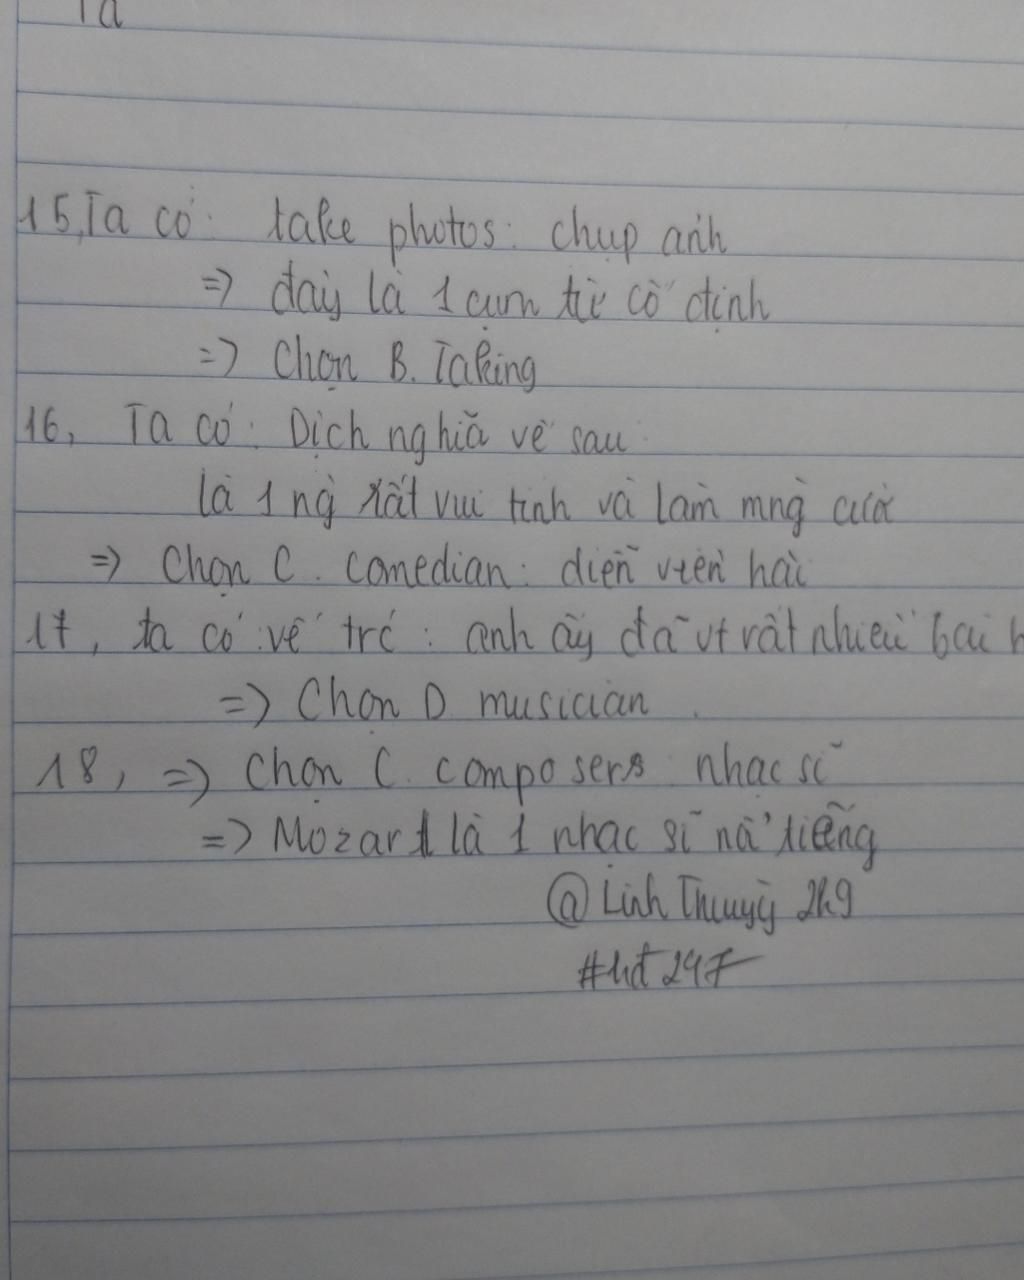 Ta
15, Ta có: take photos: chụp ảnh
=> đây là 1 cụm từ cố định
=> Chọn B. Taking
16, Ta có: Dịch nghĩa vế sau:
là 1 ng` rất vui tính và làm mng` cười
=> Chọn C. comedian: diễn viên hài
17, ta có: vế trc: anh ấy đã vt rất nhiều bài
=> Chọn D musician.
18, => Chọn C. composers nhạc sĩ
=> Mozart là 1 nhạc sĩ nổi tiếng
@ Linh Thuuỳ 2k9
#hđ247